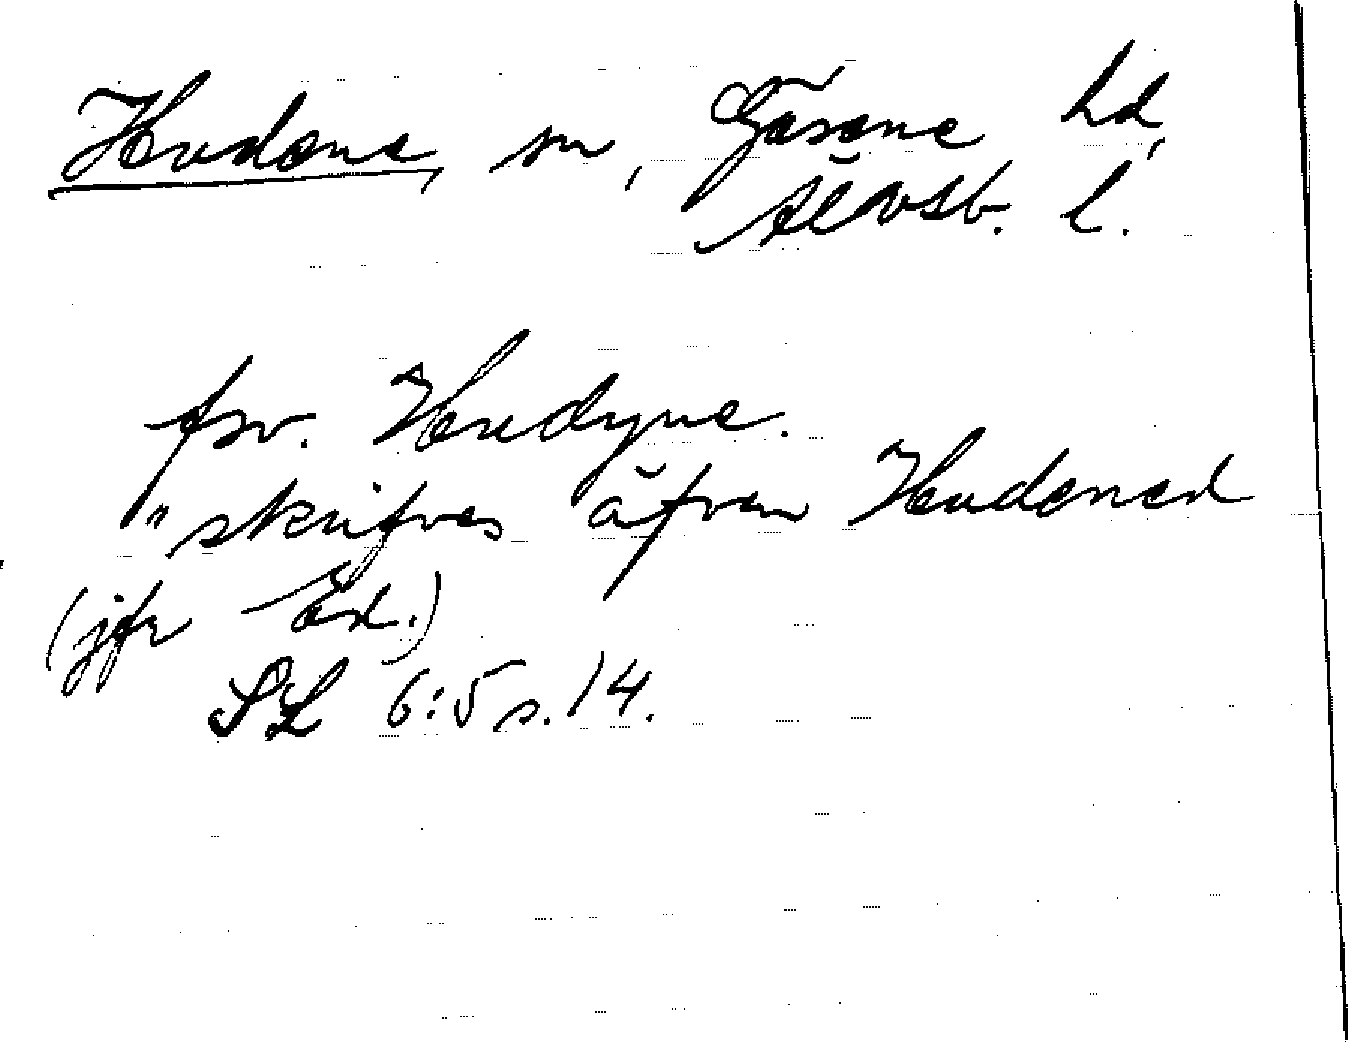 Hudene, sn, Gäsene hd,
Älvsb. l.
fsv. Hudyne.
"skrifves äfven Hudened
(jfr Ed.)
SL 6:5 s. 14.